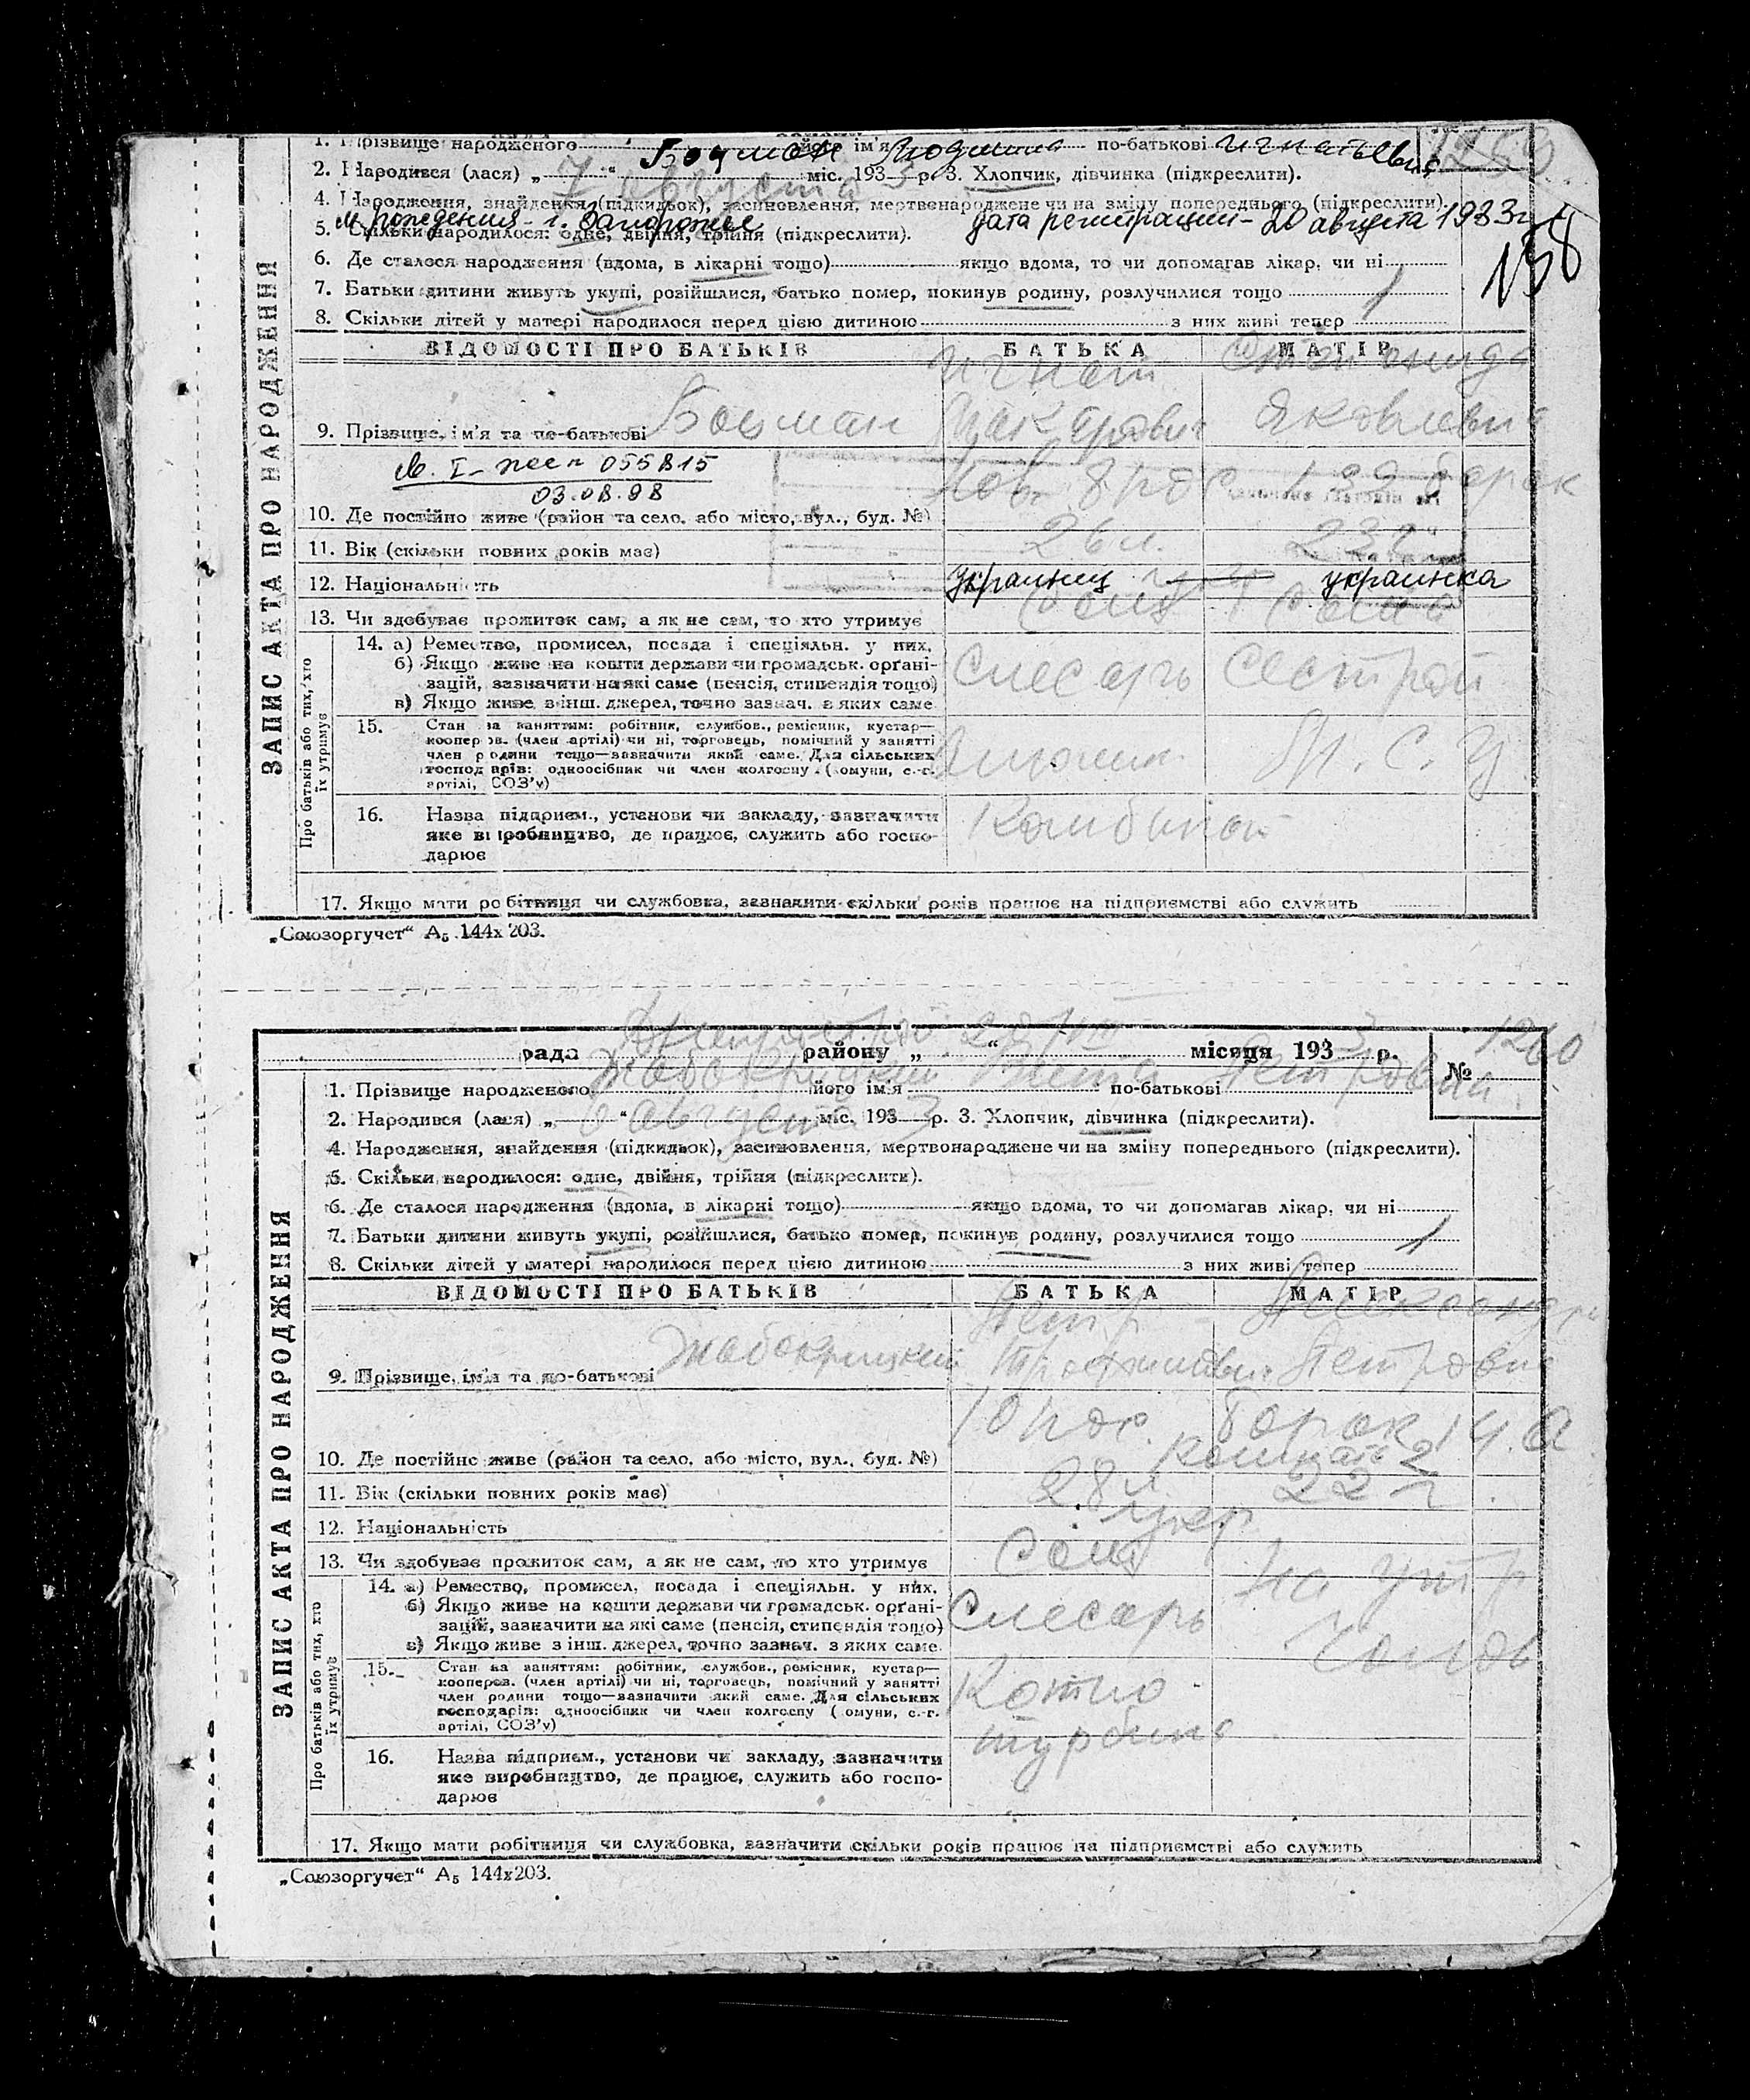 1. Прізвище народженого Боцман його ім'я Людмила по-батькові Игнатьевна 1259
2. Народився (лася) „ 7 “ августа міс. 1933 р. 3. Хлопчик, дівчинка (підкреслити).
4. Народження, знайдення (підкидьок), засиновлення, мертвонароджене чи на зміну попереднього (підкреслити).
м. рождения г. Запорожье дата регистрации - 20 августа 1933 г
5. Скільки народилося: одне, двійня, трійня (підкреслити).
138
6. Де сталося народження (вдома, в лікарні тощо) якщо вдома, то чи допомагав лікар, чи ні
7. Батьки дитини живуть укупі, розійшлися, батько помер, покинув родину, розлучилися тощо
8. Скільки дітей у матері народилося перед цією дитиною з них живі тепер 1
ЗАПИС АКТА ПРО НАРОДЖЕННЯ
ВІДОМОСТІ ПРО БАТЬКІВ БАТЬКА МАТІР
Игнат
9. Прізвище, ім'я та по-батькові Боцман Макарович Яковлевна
055815
03.08.98
8 139 барак
10. Де постійно живе (район та село, або місто, вул., буд. №)
11. Вік (скільки повних років має) 26 л. 23 г
12. Національність Украинец украинка
13. Чи здобуває прожиток сам, а як не сам, то хто утримує Сам Сама
Про батьків або тих, хто їх утримує
14. а) Ремество, промисел, посада і спеціяльн. у них.
б) Якщо живе на кошти держави чи громадськ. орґані-
зацій, зазначити на які саме (пенсія, стипендія тощо) Слесарь Сестрой
в) Якщо живе з інш. джерел, точно зазнач. з яких саме
15. Стан за заняттям: робітник, службов., ремісник, кустар—
кооперов. (член артілі) чи ні, торговець, помічний у занятті
член родини тощо—зазначити який саме. Для сільських
господарів: одноосібник чи член колгоспу (комуни, с.-г.
артілі, СОЗ'у)
16. Назва підприєм., установи чи закладу, зазначити Комбинат
яке виробництво, де працює, служить або госпо-
дарює
17. Якщо мати робітниця чи службовка, зазначити скільки років працює на підприємстві або служить
„Союзоргучет“ А₅ 144х203.
рада району „ “ місяця 1933 р. № 1260
1. Прізвище народженого Жабокрицкий його ім'я по-батькові Петровна
2. Народився (лася) „ “ августа міс. 1933 р. 3. Хлопчик, дівчинка (підкреслити).
4. Народження, знайдення (підкидьок), засиновлення, мертвонароджене чи на зміну попереднього (підкреслити).
5. Скільки народилося: одне, двійня, трійня (підкреслити).
6. Де сталося народження (вдома, в лікарні тощо) якщо вдома, то чи допомагав лікар, чи ні
7. Батьки дитини живуть укупі, розійшлися, батько помер, покинув родину, розлучилися тощо
8. Скільки дітей у матері народилося перед цією дитиною з них живі тепер 1
ЗАПИС АКТА ПРО НАРОДЖЕННЯ
ВІДОМОСТІ ПРО БАТЬКІВ БАТЬКА МАТІР
Петр Александра
9. Прізвище, ім'я та по-батькові Жабокрицкий Трофимович Петровна
10 барак 14.а
10. Де постійно живе (район та село, або місто, вул., буд. №) комната 2
11. Вік (скільки повних років має) 28 л 22 г
12. Національність укр
13. Чи здобуває прожиток сам, а як не сам, то хто утримує Сам на утр
Про батьків або тих, хто їх утримує
14. а) Ремество, промисел, посада і спеціяльн. у них.
б) Якщо живе на кошти держави чи громадськ. орґані-
зацій, зазначити на які саме (пенсія, стипендія тощо) Слесарь
в) Якщо живе з інш. джерел, точно зазнач. з яких саме.
15. Стан за заняттям: робітник, службов., ремісник, кустар—
кооперов. (член артілі) чи ні, торговець, помічний у занятті Котло
член родини тощо—зазначити який саме. Для сільських
господарів: одноосібник чи член колгоспу (комуни, с.-г.
артілі, СОЗ'у)
турбина
16. Назва підприєм., установи чи закладу, зазначити
яке виробництво, де працює, служить або госпо-
дарює
17. Якщо мати робітниця чи службовка, зазначити скільки років працює на підприємстві або служить
„Союзоргучет“ А₅ 144х203.